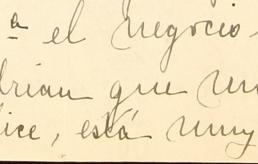 ª el negocio
drian que
ice, está muy